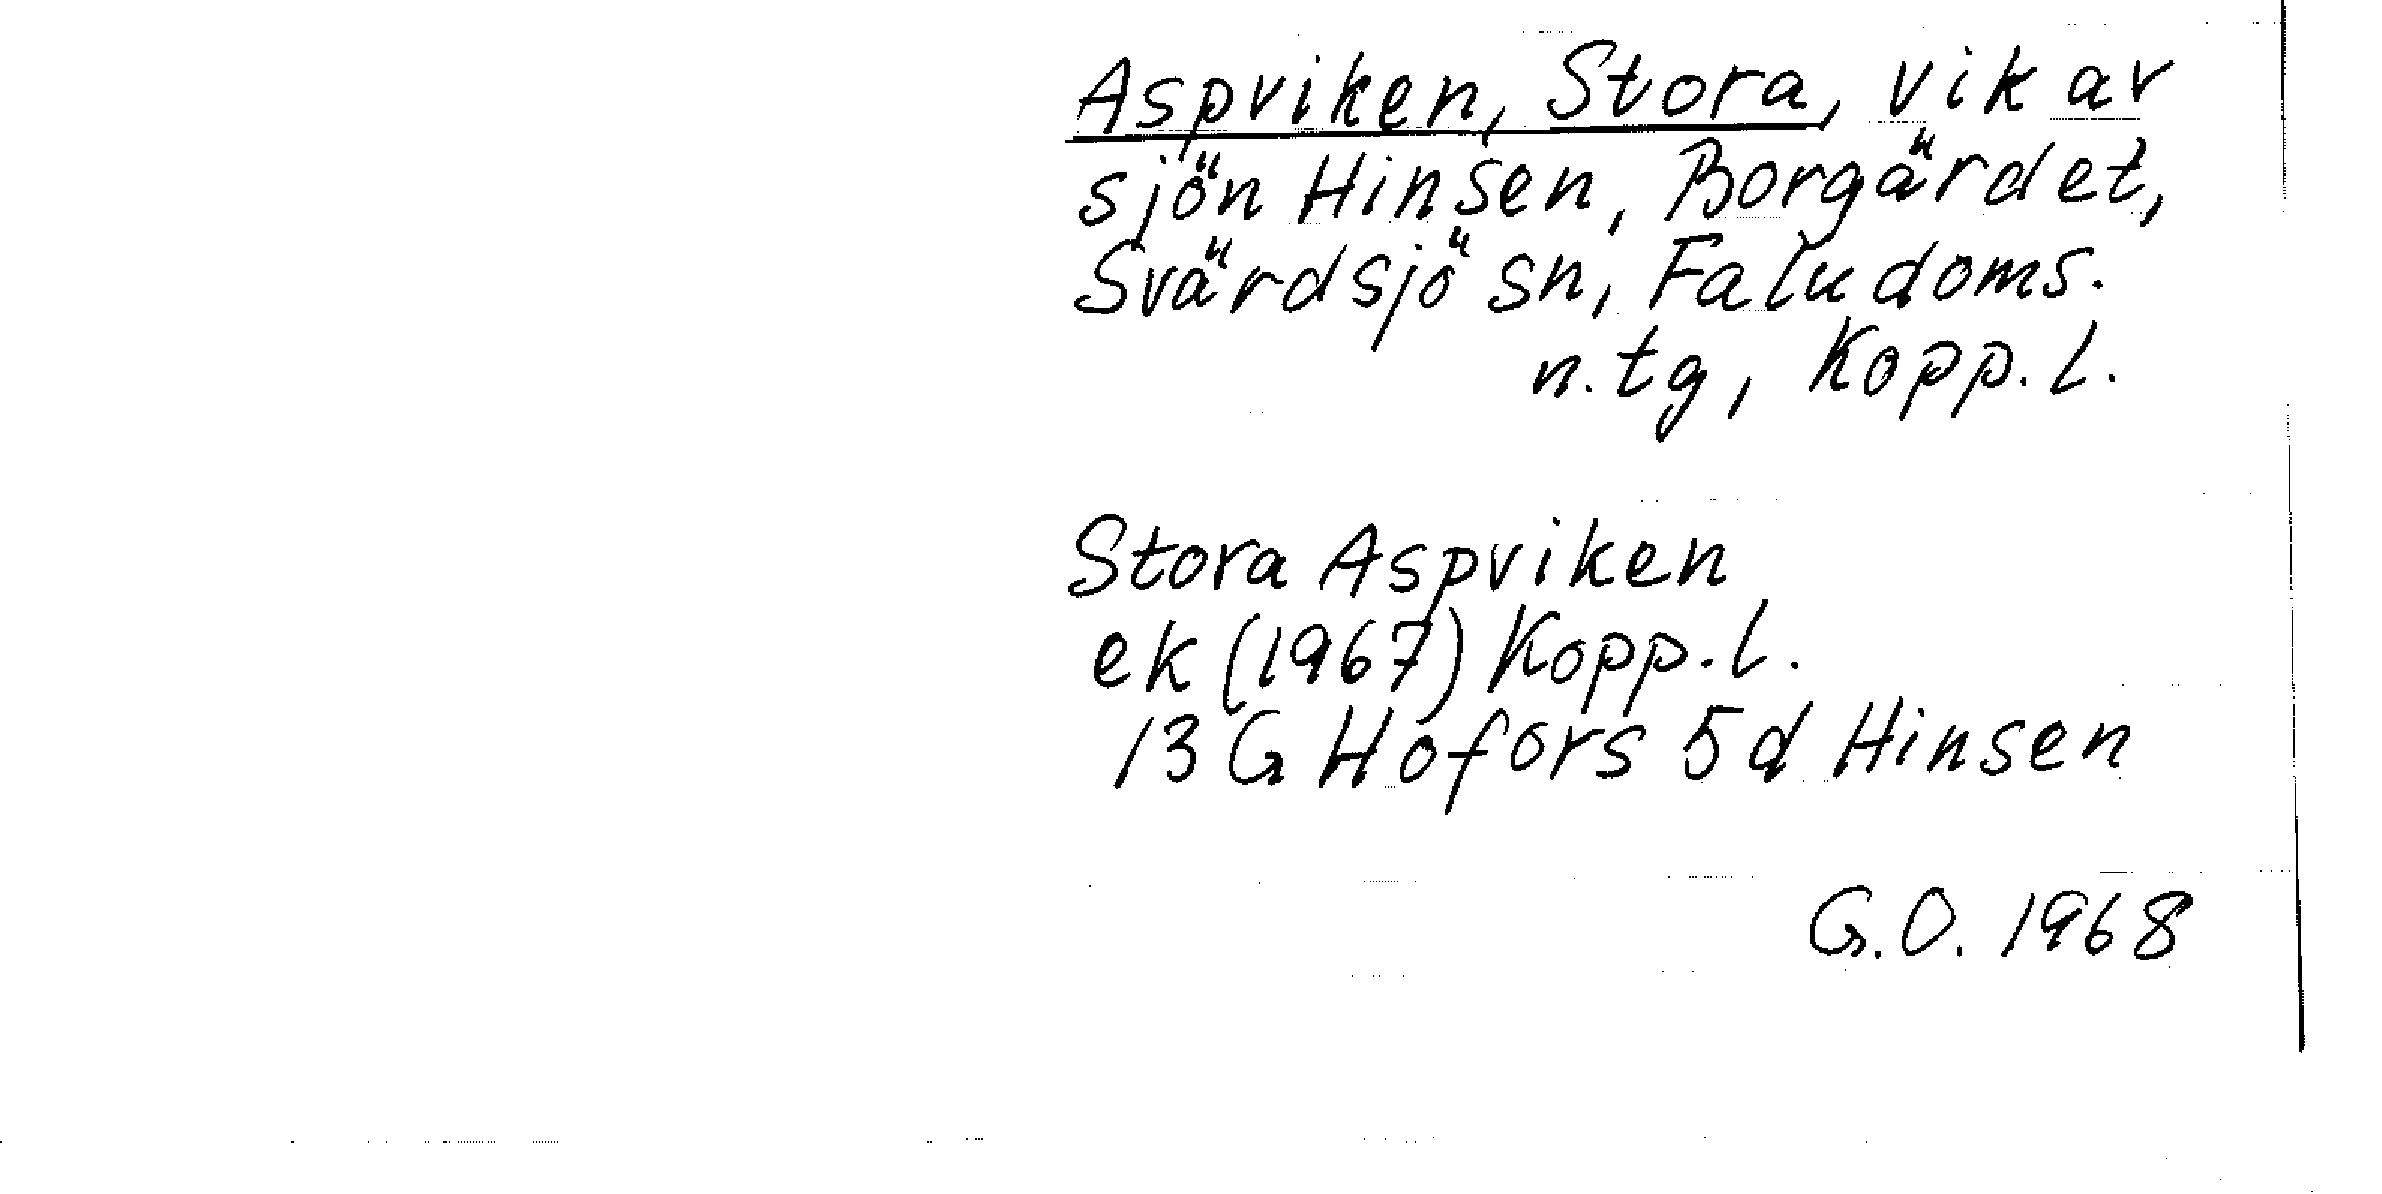 Aspviken, Stora, vik av
sjön Hinsen, Borgärdet,
Svärdsjö sn, Falu doms.
n.tg, Kopp.l.
Stora Aspviken
ek (1967) Kopp.l.
13 G Hofors 5d Hinsen
G.O. 1968